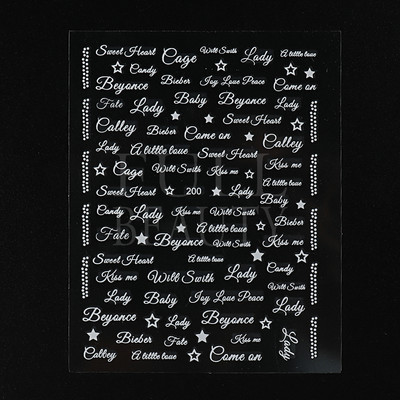 Sweet Heart Cage Will Swith Lady A little love
Candy
Beyonce Bieber Joy Love Peace Come on
Fate Lady Baby Beyonce Lady
Calley Bieber Come on Sweet Heart Calley
Lady A little love Sweet Heart A little love
Cage Will Swith Kiss me
Sweet Heart 200 Lady A little love
Baby
Candy Lady Kiss me Will Swith
Bieber
Fate Beyonce Will Swith Kiss me
Sweet Heart A little love Candy
Kiss me Will Swith Lady
Lady Baby Joy Love Peace Will Swith
Beyonce Lady Beyonce
Bieber Fate Kiss me Lady
Calley A little love Come on
FULL
BEAUTY